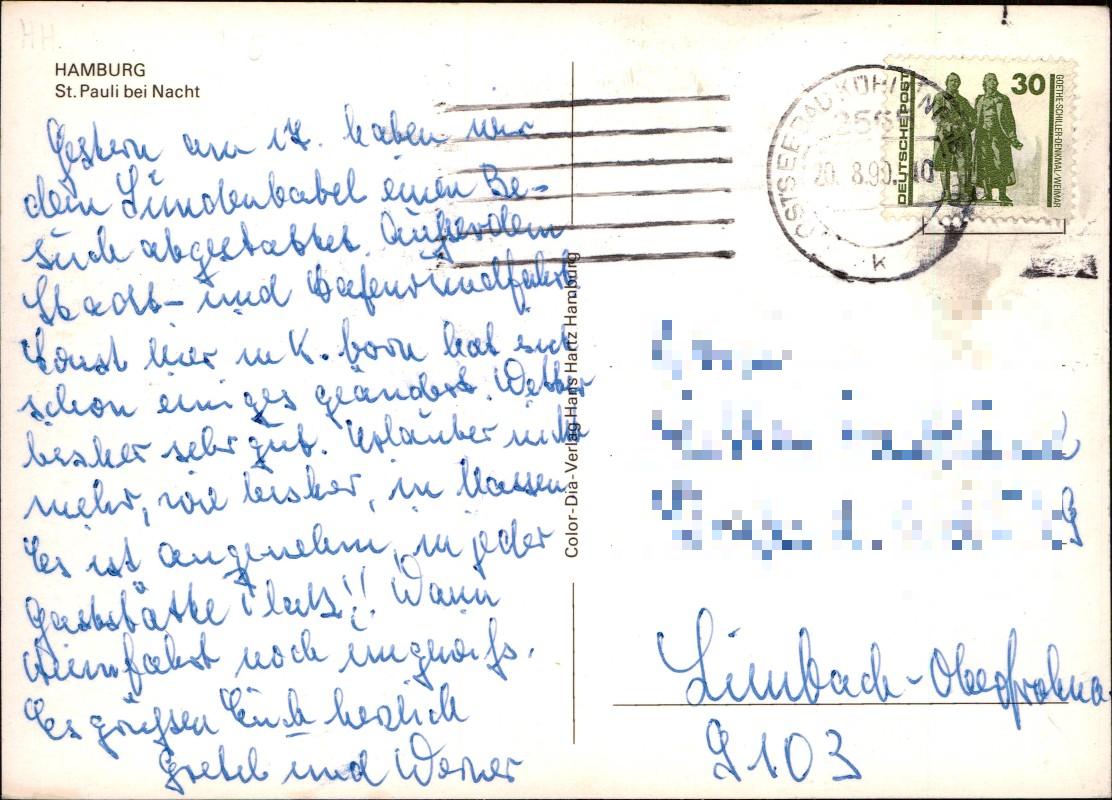 HAMBURG
St. Pauli bei Nacht
Gestern am 17. haben wir
dem Sündenbabel einen Be-
such abgestattet. Außerdem
Stadt- und Hafenrundfahrt
Sonst hier in K. born hat sich
schon einiges geändert. Wetter
bisher sehr gut. Urlauber nicht
mehr, wie bisher, in Massen
Es ist angenehm, in jeder
Gaststätte Platz!! Wann
Heimfahrt noch ungewiss.
Es grüßen Euch herzlich
Gretel und Werner
Color-Dia-Verlag Hans Hartz Hamburg
OSTSEEBAD KÜHLUNGSBORN
256
20. 8.90. 10
K
DEUTSCHE POST
30
GOETHE-SCHILLER-DENKMAL/WEIMAR
Limbach-Oberfrohna
9103